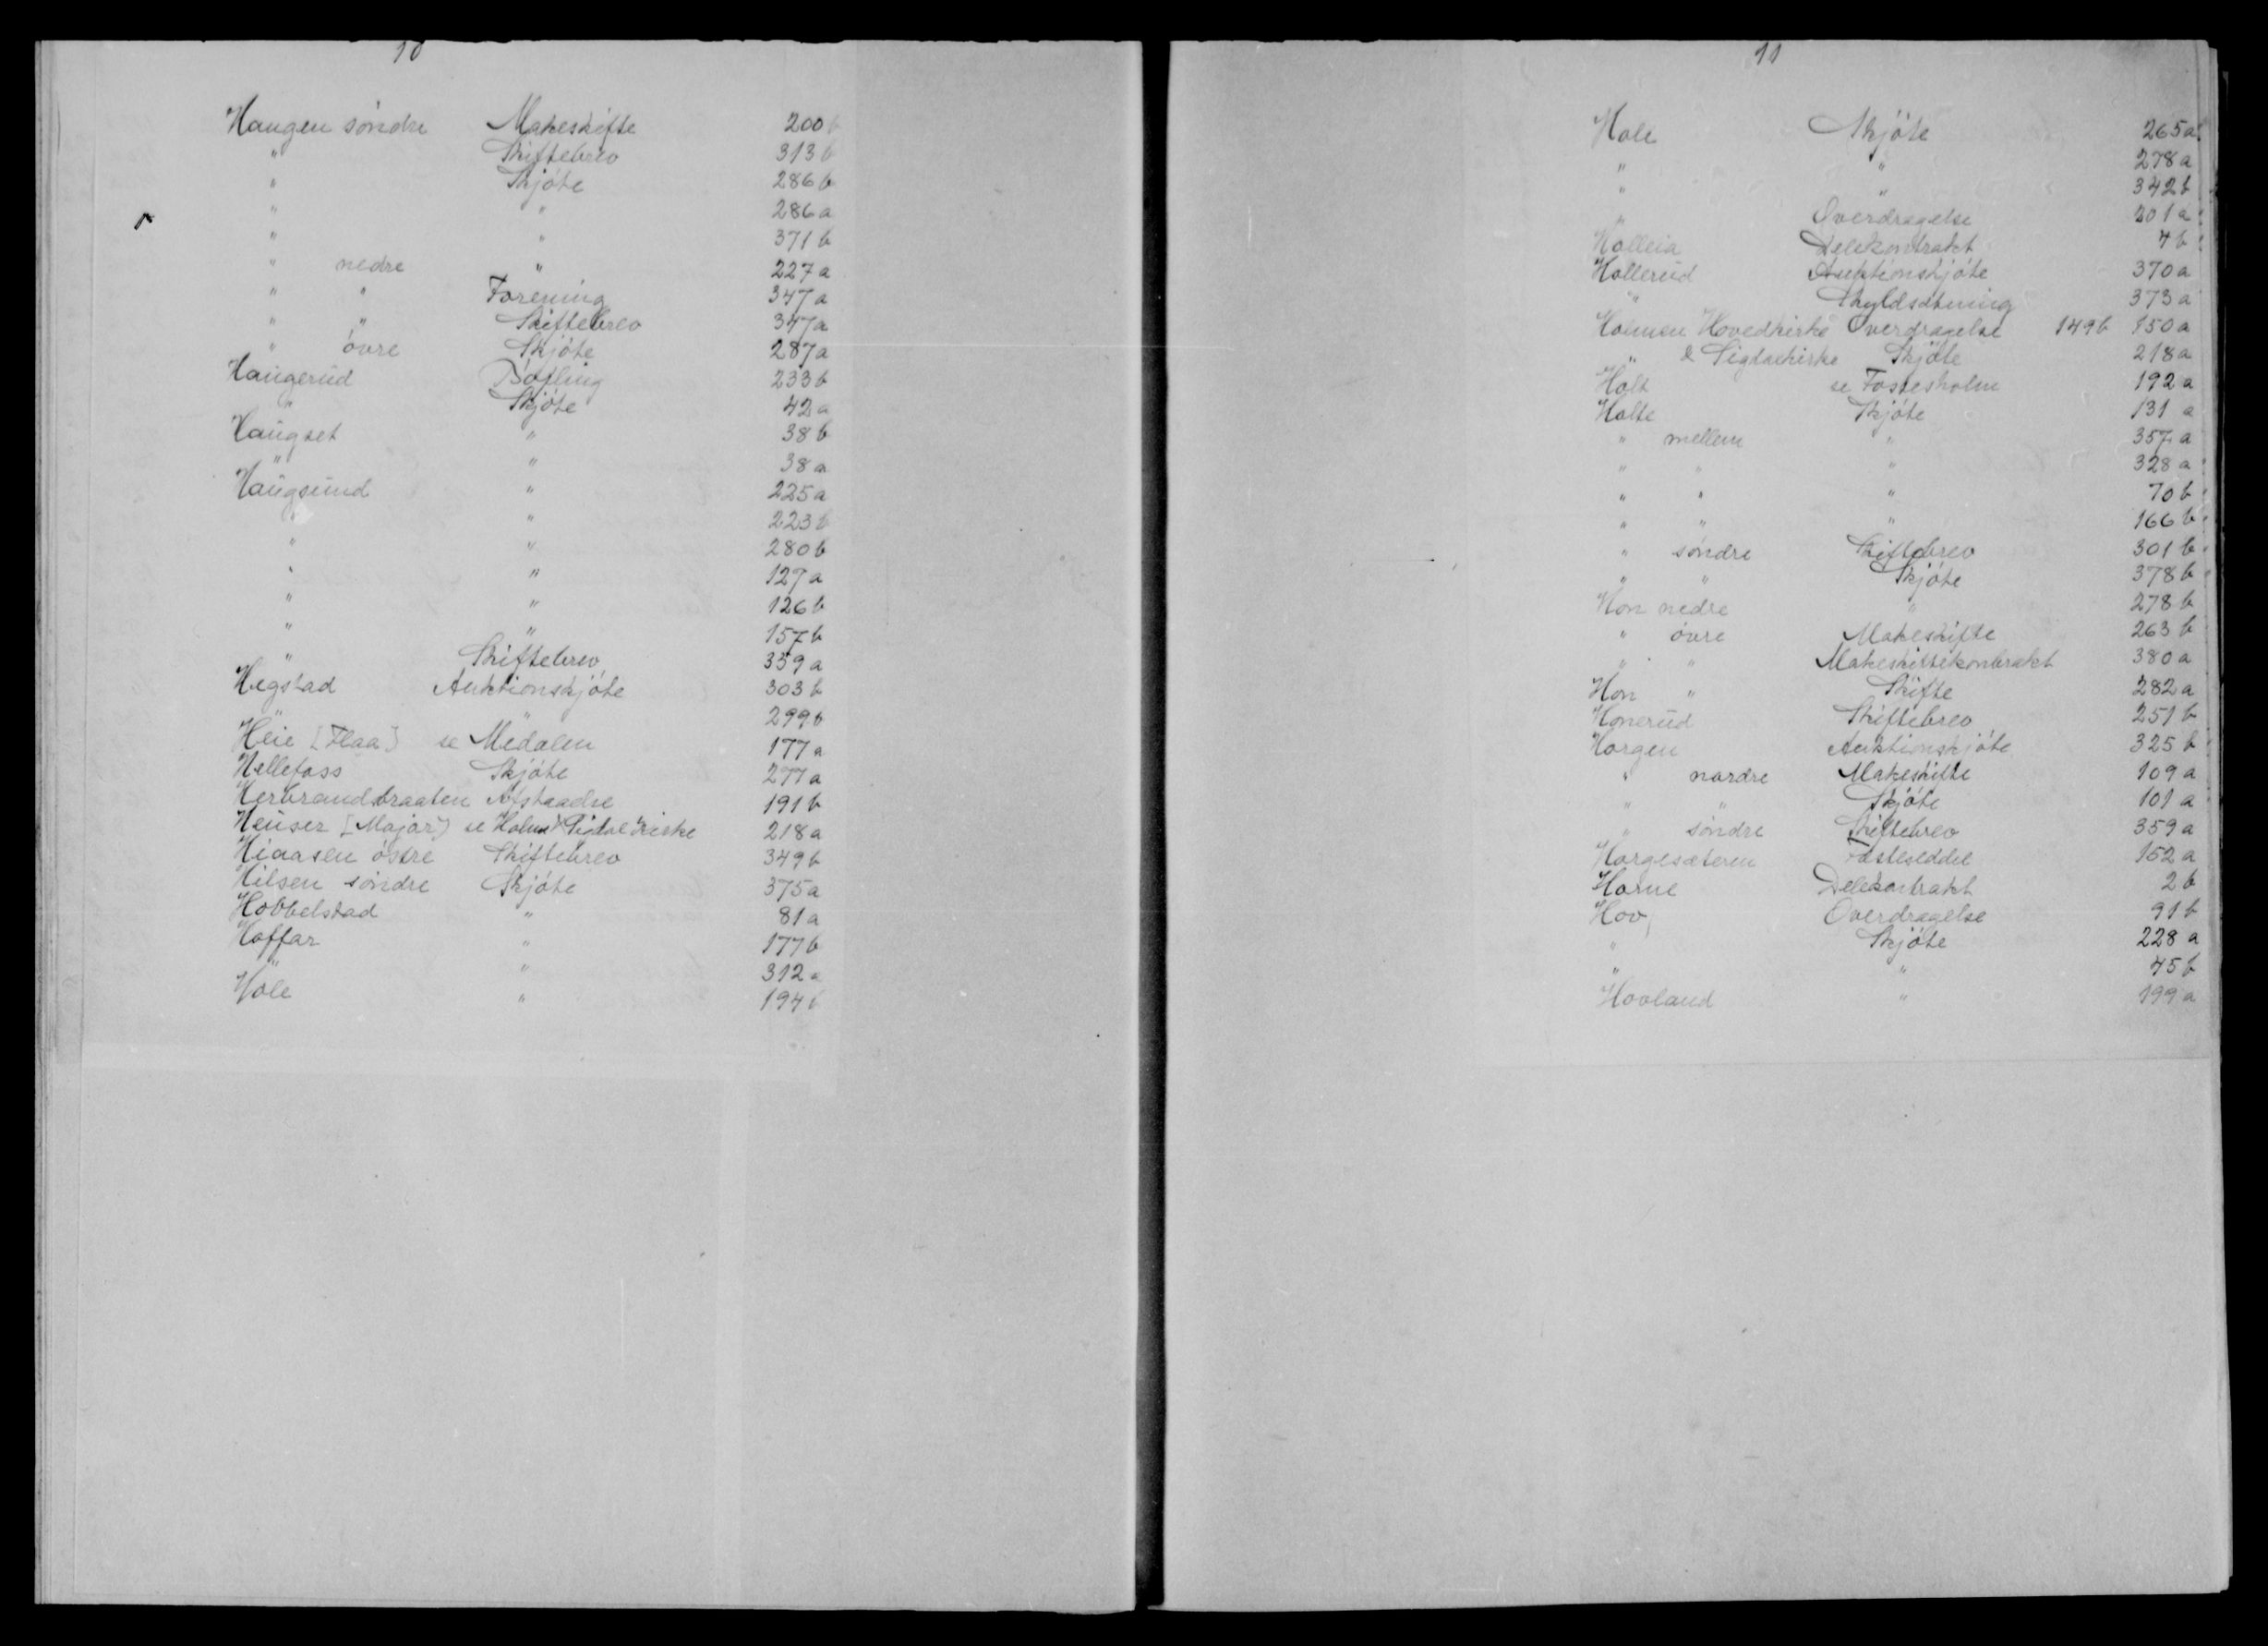 10
Haugen söndre Makeskifte 200 b
" Skiftebrev 313 b
" Skjöte 286 b
" " 286 a
" " 371 b
" nedre " 227 a
" " Forening 347 a
" " Skiftebrev 347 a
" övre Skjöte 287 a
Haugerud 233 b
" Skjöte 42 a
Haugset " 38 b
" " 38 a
Haugsund " 225 a
" " 223 b
" " 280 b
" " 127 a
" " 126 b
" " 157 b
" Skiftebrev 359 a
Hegstad Auktionskjöte 303 b
" " 299 b
Heie [Flaa] se Medalen 177 a
Hellefoss Skjöte 277 a
Herbrandsbraaten Afstaaelse 191 b
Heuser [Major] se Holms & Sigdal kirke 218 a
Hiaasen östre Skiftebrev 349 b
Hilsen söndre Skjöte 375 a
Hobbelstad " 81 a
Hoffar " 177 b
" " 312 a
Hole " 194 b
11
Hole Skjöte 265 a
" " 278 a
" " 342 b
" Overdragelse 201 a
Holleia Delekontrakt 4 b
Hollerud Auktionskjöte 370 a
" Skyldsætning 373 a
Holmen Hovedkirke Overdragelse 149 b 150 a
" & Sigdalkirke Skjöte 218 a
Holt se Fossesholm 192 a
Holte Skjöte 131 a
" mellem " 357 a
" " " 328 a
" " " 70 b
" " " 166 b
" söndre Skiftebrev 301 b
" " Skjöte 378 b
Hon nedre " 278 b
" övre Makeskifte 263 b
" " Makeskiftekontrakt 380 a
Hon " Skifte 282 a
Honerud Skiftebrev 251 b
Horgen Auktionskjöte 325 b
" nordre Makeskifte 109 a
" " Skjöte 101 a
" söndre Skiftebrev 359 a
Horgesæteren Fæsteseddel 152 a
Horne Delekontrakt 2 b
Hov Overdragelse 91 b
" Skjöte 228 a
" " 45 b
Hovland " 199 a